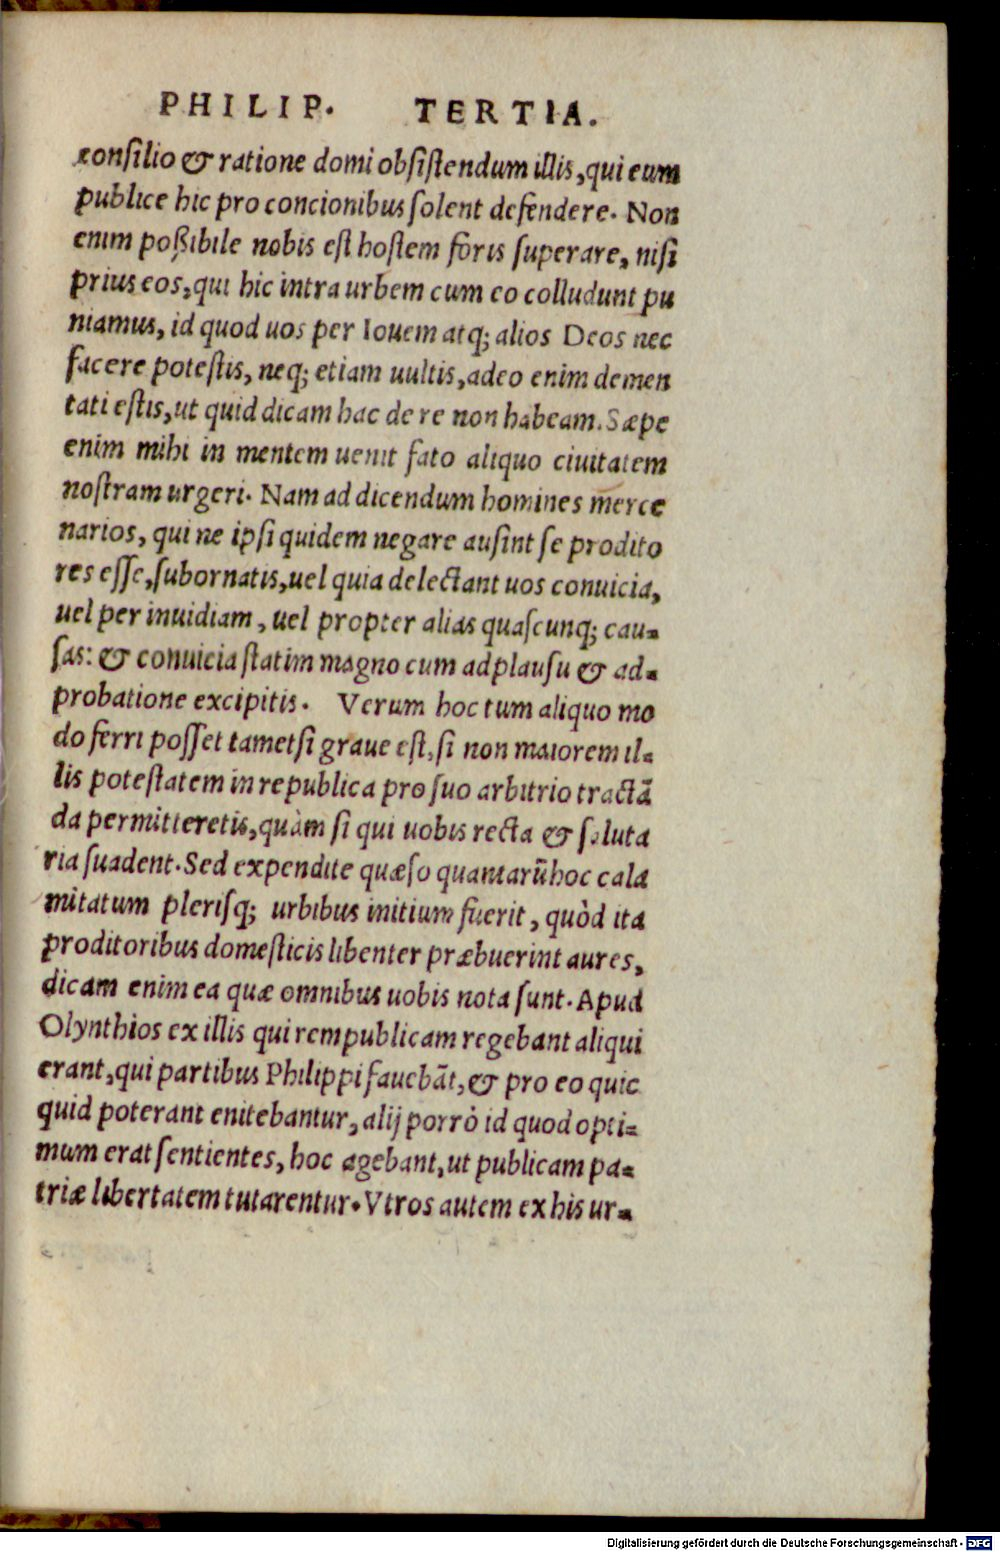 PHILIP. TERTIA.
consilio & ratione domi obsistendum illis, qui eum
publice hic pro concionibus solent defendere. Non
enim poßibile nobis est hostem foris superare, nisi
prius eos, qui hic intra urbem cum eo colludunt pu
niamus, id quod uos per Iouem atq; alios Deos nec
facere potestis, neq; etiam uultis, adeo enim demen
tati estis, ut quid dicam hac de re non habeam. Sæpe
enim mihi in mentem uenit fato aliquo ciuitatem
nostram urgeri. Nam ad dicendum homines merce
narios, qui ne ipsi quidem negare ausint se prodito
res esse, subornatis, uel quia delectant uos conuicia,
uel per inuidiam, uel propter alias quascunq; cau-
sas: & conuicia statim magno cum adplausu & ad-
probatione excipitis. Verum hoc tum aliquo mo
do ferri posset tametsi graue est, si non maiorem il-
lis potestatem in republica pro suo arbitrio tractã
da permitteretis, quàm si qui uobis recta & saluta
ria suadent. Sed expendite quæso quantarũ hoc cala
mitatum plerisq; urbibus initium fuerit, quòd ita
proditoribus domesticis libenter præbuerint aures,
dicam enim ea quæ omnibus uobis nota sunt. Apud
Olynthios ex illis qui rempublicam regebant aliqui
erant, qui partibus Philippi fauebãt, & pro eo quic
quid poterant enitebantur, alij porrò id quod opti-
mum erat sentientes, hoc agebant, ut publicam pa-
triæ libertatem tutarentur. Vtros autem ex his ur-
Digitalisierung gefördert durch die Deutsche Forschungsgemeinschaft - DFG